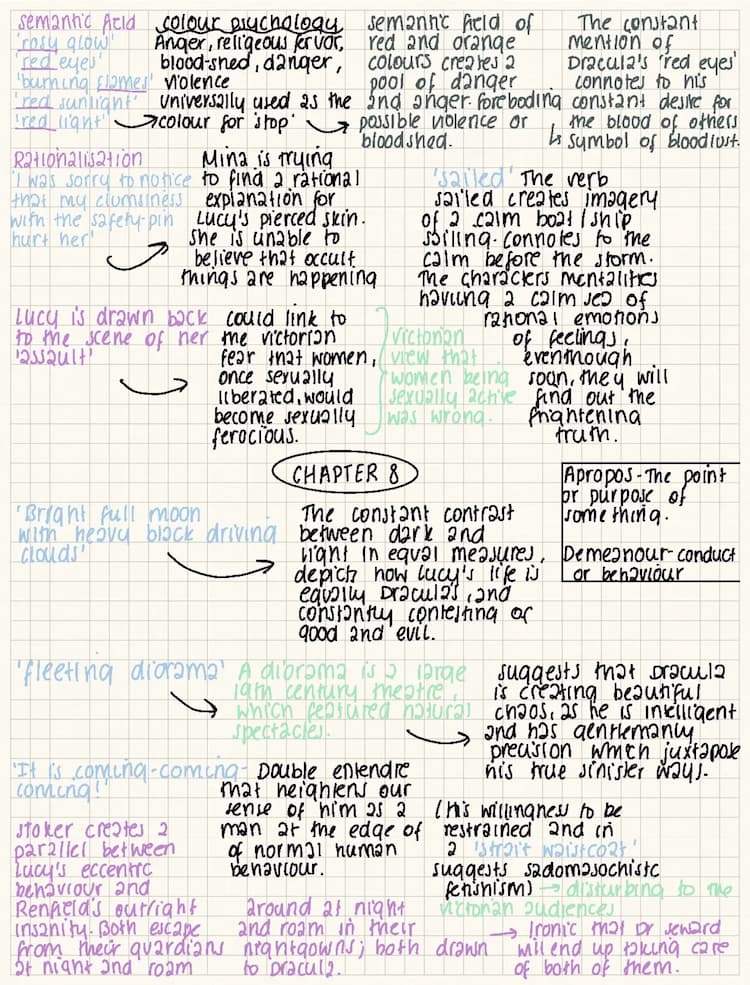 semantic field
'rosy glow'
'red eyes'
'burning flames'
'red sunlight'
'red light'
colour psychology
Anger, religeous fervor,
blood-shed, danger,
violence
universally used as the
colour for 'stop'
semantic field of
red and orange
colours creates a
pool of danger
and anger. foreboding
possible violence or
bloodshed.
The constant
mention of
Dracula's 'red eyes'
connotes to his
constant desire for
the blood of others
↳ symbol of bloodlust.
Rationalisation
'I was sorry to notice
that my clumsiness
with the safety-pin
hurt her'
Mina is trying
to find a rational
explanation for
Lucy's pierced skin.
she is unable to
believe that occult
things are happening
'sailed' The verb
sailed creates imagery
of a calm boat/ship
sailing. connotes to the
calm before the storm.
The characters mentalities
having a calm sea of
rational emotions
of feelings,
eventhough
soon, they will
find out the
frightening
truth.
Lucy is drawn back
to the scene of her
'assault'
could link to
the victorian
fear that women,
once sexually
liberated, would
become sexually
ferocious.
victorian
view that
women being
sexually active
was wrong.
CHAPTER 8
Apropos - The point
or purpose of
something.
Demeanour - conduct
or behaviour
'Bright full moon
with heavy black driving
clouds'
The constant contrast
between dark and
light in equal measures,
depich how Lucy's life is
equally Draculas, and
constantly contesting of
good and evil.
'fleeting diorama'
A diorama is a large
19th century theatre,
which featured natural
spectacles.
suggests that Dracula
is creating beautiful
chaos, as he is intelligent
and has gentlemanly
precision which juxtapose
his true sinister ways.
'It is coming-coming-
coming!'
Double entendre
that heightens our
sense of him as a
man at the edge of
of normal human
behaviour.
(his willingness to be
restrained and in
a 'strait waistcoat'
suggests sadomasochistc
fetishism) → disturbing to the
victorian audiences
stoker creates a
parallel between
Lucy's eccentric
behaviour and
Renfield's outright
insanity. Both escape
from their guardians
at night and roam
around at night
and roam in their
nightgowns; both drawn
to dracula.
→ Ironic that Dr seward
wil end up taking care
of both of them.